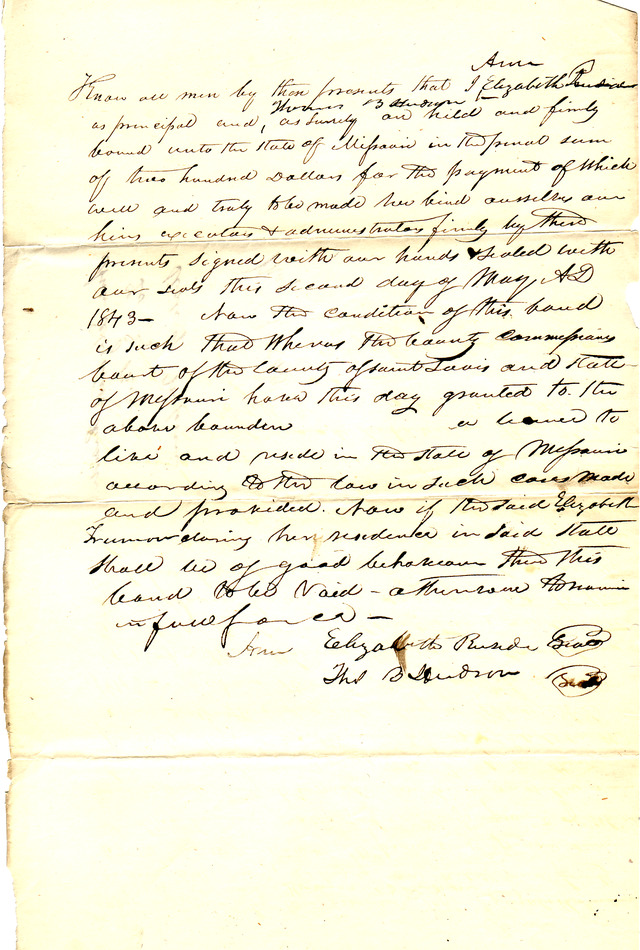 Ann
Know all men by these presents that I Elizabeth
Thomas B Hudson
as principal and, as Surety are held and firmly
bound unto the State of Missouri in the penal sum
of two hundred Dollars for the payment of which
well and truly to be made we bind ourselves our
heirs executors & administrators firmly by these
presents signed with our hands & sealed with
our seals this second day of May AD
1843 - Now the condition of this bond
is such that Whereas the County Commissioners
Court of the County of Saint Louis and State
of Missouri have this day granted to the
above bounden a license to
live and reside in the State of Missouri
according to the law in such cases made
and provided. Now if the said Elizabeth
during her residence in said State
shall be of good behaviour then this
bond to be void - otherwise to remain
in full force -
Ann Elizabeth Seal
Thos B Hudson Seal